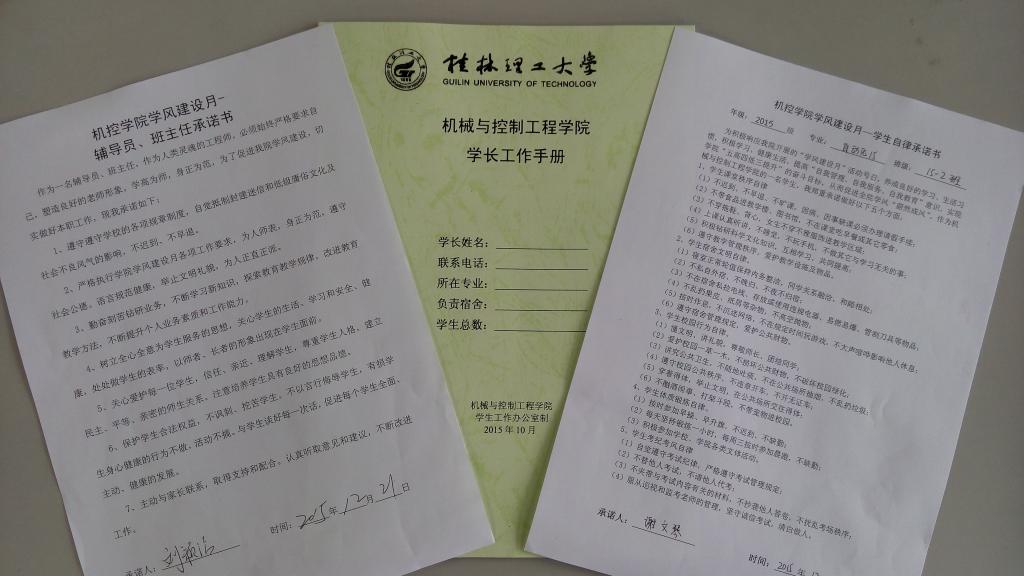 机控学院学风建设月-
辅导员、班主任承诺书
作为一名辅导员、班主任，作为人类灵魂的工程师，必须始终严格要求自
己，塑造良好的老师形象，学高为师，身正为范，为了促进我院学风建设，切
实做好本职工作，现我承诺如下：
1、遵守遵守学校的各项规章制度，自觉抵制封建迷信和低级庸俗文化及
社会不良风气的影响，不迟到、不早退。
2、严格执行学院学风建设月各项工作要求，为人师表，身正为范，遵守
社会公德，语言规范健康，举止文明礼貌，为人正直正派。
3、勤奋刻苦钻研业务，不断学习新知识，探索教育教学规律，改进教育
教学方法，不断提升个人业务素质和工作能力。
4、树立全心全意为学生服务的思想，关心学生的生活、学习和安全、健
康，处处做学生的表率，以师者、长者的形象出现在学生面前。
5、关心爱护每一位学生，信任、亲近、理解学生，尊重学生人格，建立
民主、平等、亲密的师生关系，注意培养学生具有良好的思想品德。
6、保护学生合法权益，不讽刺、挖苦学生，不以言行侮辱学生，有损学
生身心健康的行为不做，活动不搞。与学生谈好每一次话，促进每个学生全面、
主动、健康的发展。
7、主动与家长联系，取得支持和配合。认真听取意见和建议，不断改进
工作。
时间：2015年12月21日
承诺人：
桂林理工大学
GUILIN UNIVERSITY OF TECHNOLOGY
机械与控制工程学院
学长工作手册
学长姓名：
联系电话：
所在专业：
负责宿舍：
学生总数：
机械与控制工程学院
学生工作办公室制
2015年10月
机控学院学风建设月—学生自律承诺书
年级：2015 级 专业： 班级：15-2班
为积极响应我院开展的“学风建设月”活动号召，养成良好的学习、生活习
惯，积极学习，健康生活，提高“自我管理、自我服务、自我教育”意识，实现
学院“五高四低三提升”的奋斗目标，从而促进全院学风“蔚然成风”。作为机
械与控制工程学院的一名学生，我郑重承诺做好以下五个方面。
1、学生课堂秩序自律
（1）不迟到、不早退、不旷课，因病、因事缺课必须办理请假手续；
（2）不带食品进教学楼、图书馆，不在课堂吃早餐或其它零食；
（3）不穿拖鞋、背心，女士不穿不雅服饰进教学区域；
（4）上课认真听讲，不睡觉，不玩手机，不做其它与学习无关的事；
（5）积极钻研科学文化知识，互相学习，共同提高；
（6）遵守教学管理秩序，爱护教学设施及物品。
2、学生宿舍文明自律
（1）寝室正常轮值保持内务整洁，同学关系融洽、和睦相处；
（2）不私自外宿、不晚归、不夜不归宿；
（4）不乱扔果皮、纸屑等杂物，不高空抛物；
（5）按时作息，不沉迷网络，不在规定时间玩游戏，不大声喧哗影响他人休息，
（6）遵守宿舍管理规定，爱护公共财物。
3、学生校园行为自律
（1）懂文明、讲礼貌，尊敬师长、团结同学；
（2）爱护校园一草一木，不损坏公共财物，不破坏校园绿化；
（3）讲究公共卫生，不随地吐痰，不在公共场所抽烟、不乱扔垃圾；
（4）遵守校园公共秩序，不违章开车、不开无证车；
（5）穿着得体、举止文明，在公共场所交往得体。
（6）不酗酒闹事、打架斗殴，不带宠物进校园。
4、学生体质锻炼自律
（1）按时参加早操、早升旗，不迟到、不缺勤；
（2）每天坚持锻炼一小时，每周三按时参加晨跑，不缺勤；
（3）积极参加学校、学院各类文体活动。
5、学生考纪考风自律
（1）自觉遵守考试纪律，严格遵守考试管理规定；
（2）不替他人考试，不请他人代考；
（3）不夹带与考试内容有关的材料，不抄袭他人答卷，不扰乱考场秩序，
（4）服从巡视和监考老师的管理，坚守诚信考试，清白做人。
承诺人：谢文琴
时间：2015 年 12